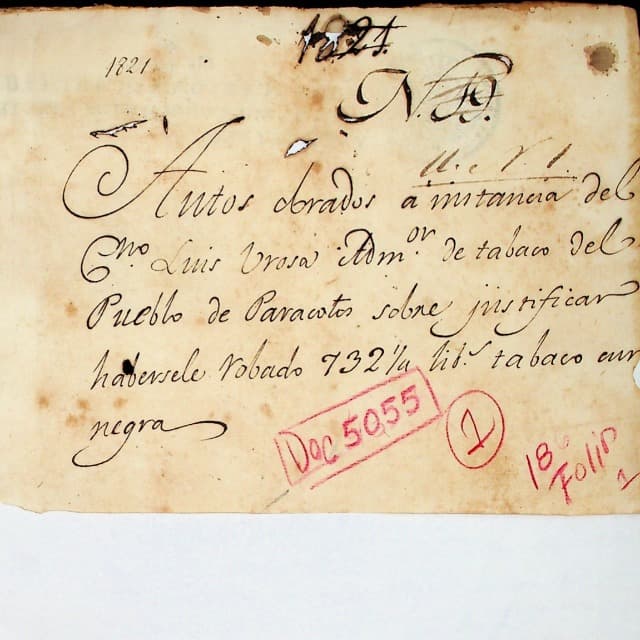 1821.
1821
Autos obrados a instancia del
Cno Luis Urosa Admor de tabaco del
Pueblo de Paracotos sobre justificar
habersele robado 732 libs tabaco cur
negra
Doc 5055
1
18
Folios
1